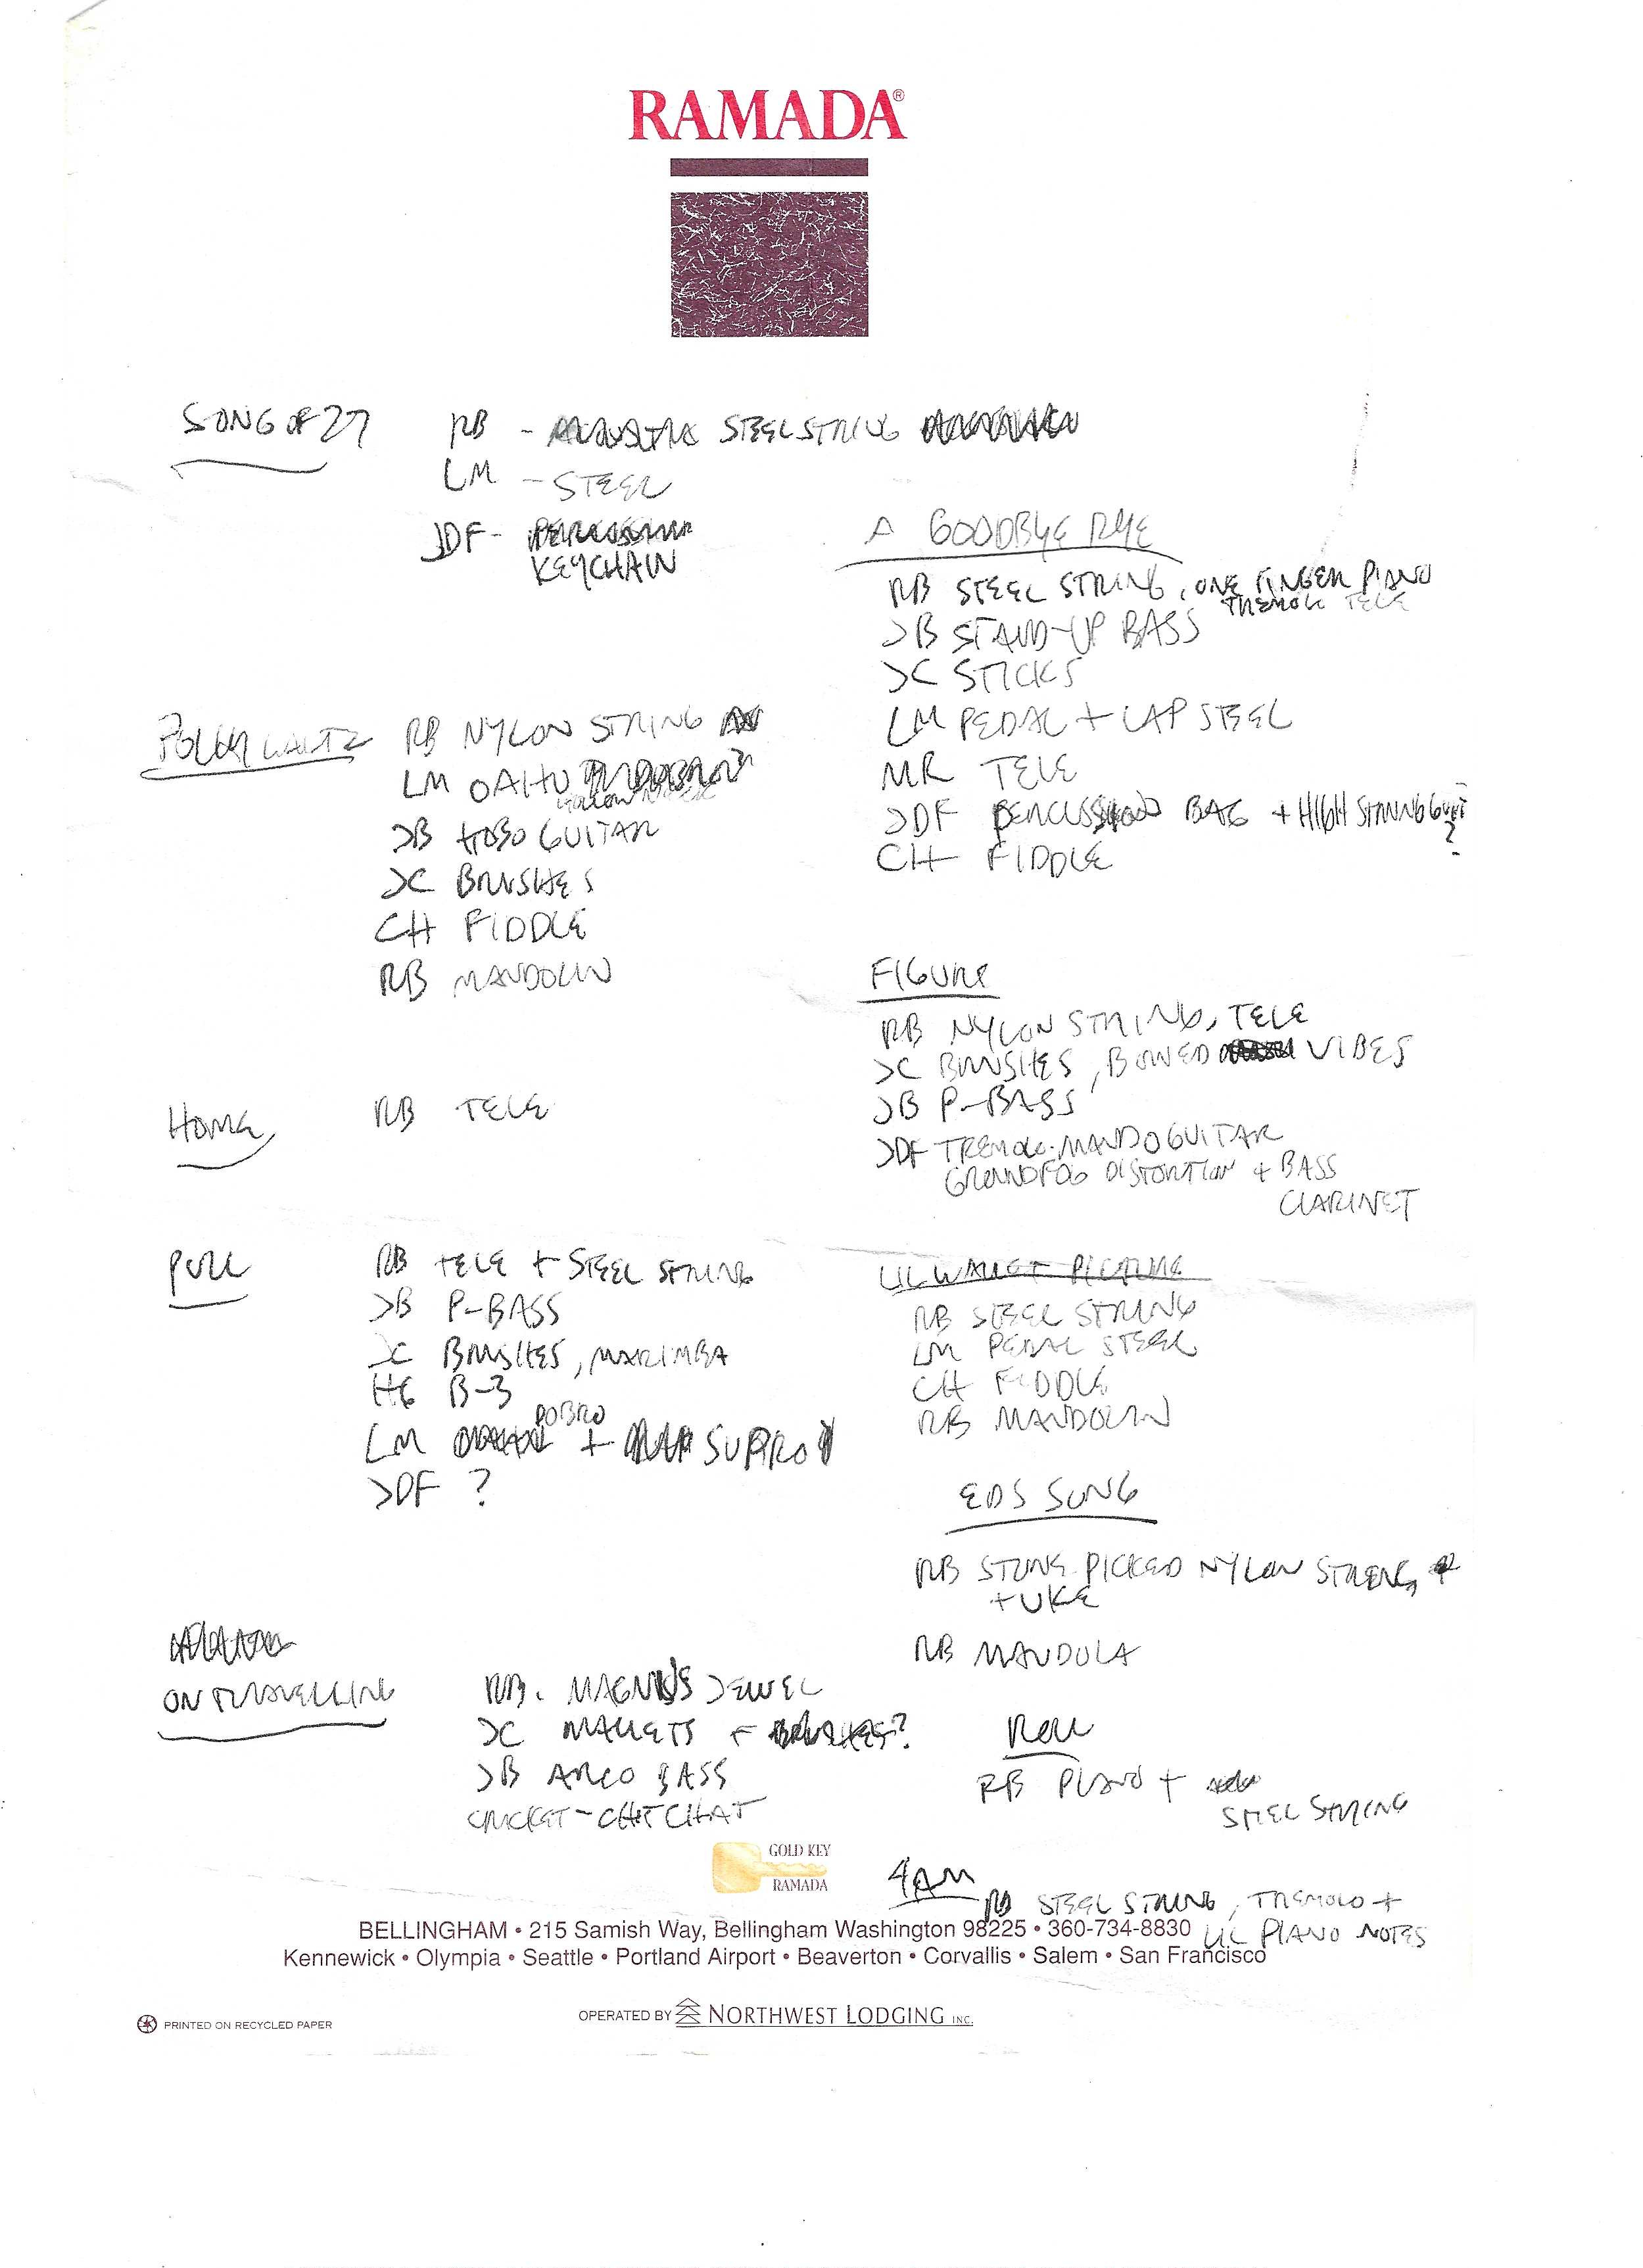 RAMADA®
SONG OF 27
RB - STEEL STRING
LM - STEEL
JDF -
KEYCHAIN
POLLY WALTZ
RB NYLON STRING
LM OAHU
JB HOBO GUITAR
JC BRUSHES
CH FIDDLE
RB MANDOLIN
HOME
RB TELE
PULL
RB TELE + STEEL STRING
JB P-BASS
JC BRUSHES, MARIMBA
HG B-3
DOBRO
LM + SUPRO
JDF ?
ON TRAVELLING
RB. MAGNUS JEWEL
JC MALLETS + BRUSHES?
JB ARCO BASS
CRICKET-CHITCHAT
A GOODBYE RYE
RB STEEL STRING, ONE FINGER PIANO
TREMOLO TELE
JB STAND-UP BASS
JC STICKS
LM PEDAL + LAP STEEL
MR TELE
JDF PERCUSSION BAG + HIGH STRUNG GUIT
?
CH FIDDLE
FIGURE
RB NYLON STRING, TELE
JC BRUSHES, BOWED VIBES
JB P-BASS
JDF TREMOLO-MANDOGUITAR
GROUNDFOG DISTORTION + BASS
CLARINET
LIL WALLET PICTURE
RB STEEL STRING
LM PEDAL STEEL
CH FIDDLE
RB MANDOLIN
EDS SONG
RB STONE PICKED NYLON STRING
+ UKE
RB MANDOLA
ROLL
RB PIANO +
STEEL STRING
4AM
RB STEEL STRING, TREMOLO +
LIL PIANO NOTES
GOLD KEY
RAMADA
BELLINGHAM • 215 Samish Way, Bellingham Washington 98225 • 360-734-8830
Kennewick • Olympia • Seattle • Portland Airport • Beaverton • Corvallis • Salem • San Francisco
OPERATED BY NORTHWEST LODGING INC.
PRINTED ON RECYCLED PAPER